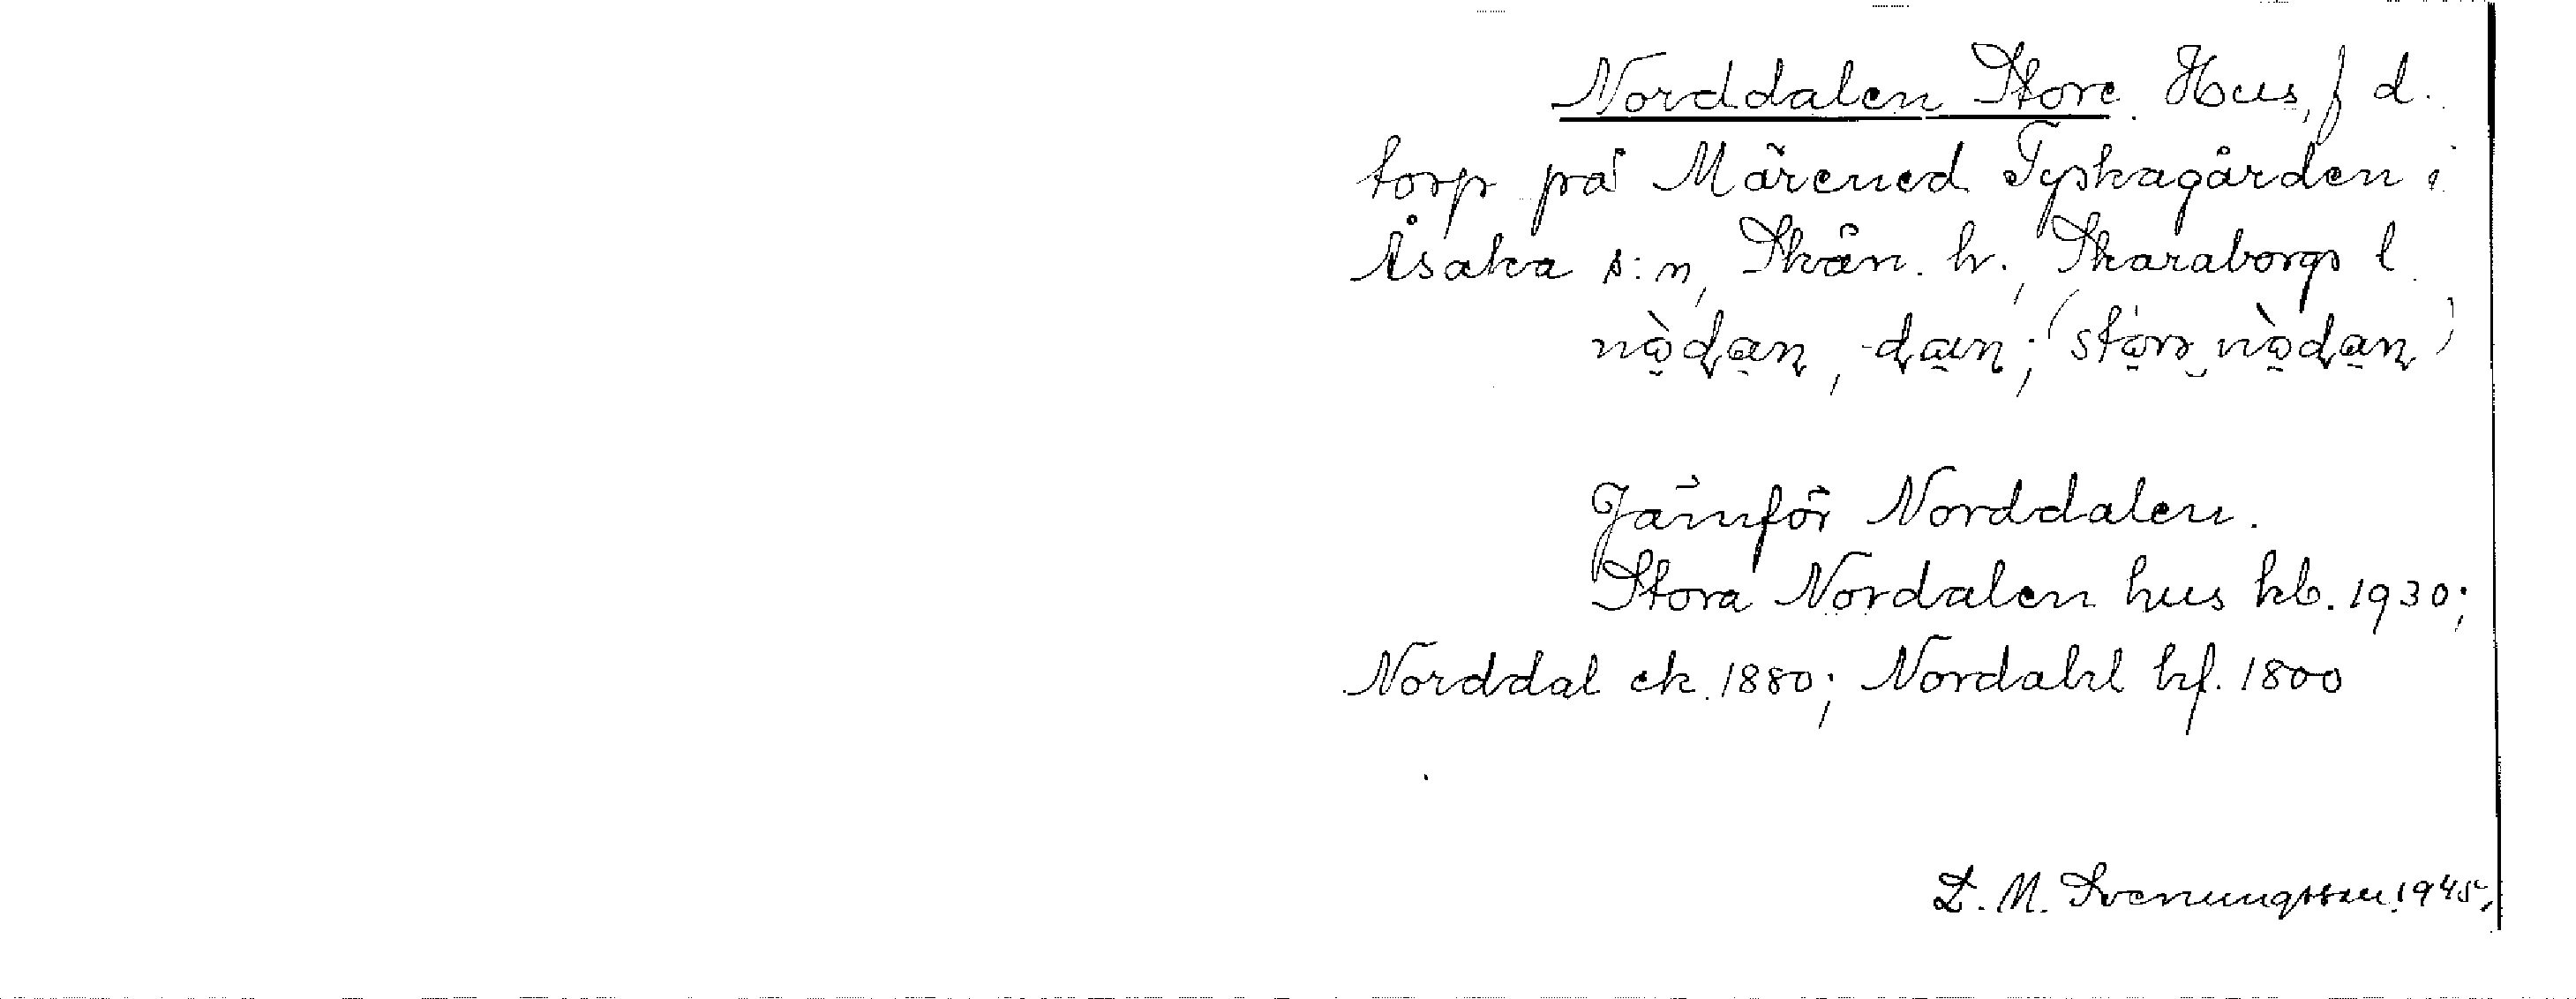 Norddalen Store. Hus, f d.
torp på Märened Tyskagården i
Åsaka s:n, Skån. h., Skaraborgs l.
nòdan, -dan; (stòrs nòdan)
Jämför Norddalen.
Stora Nordalen hus kb. 1930;
Norddal ek. 1880; Nordahl hf. 1800
L. M. Svenungsson. 1945.